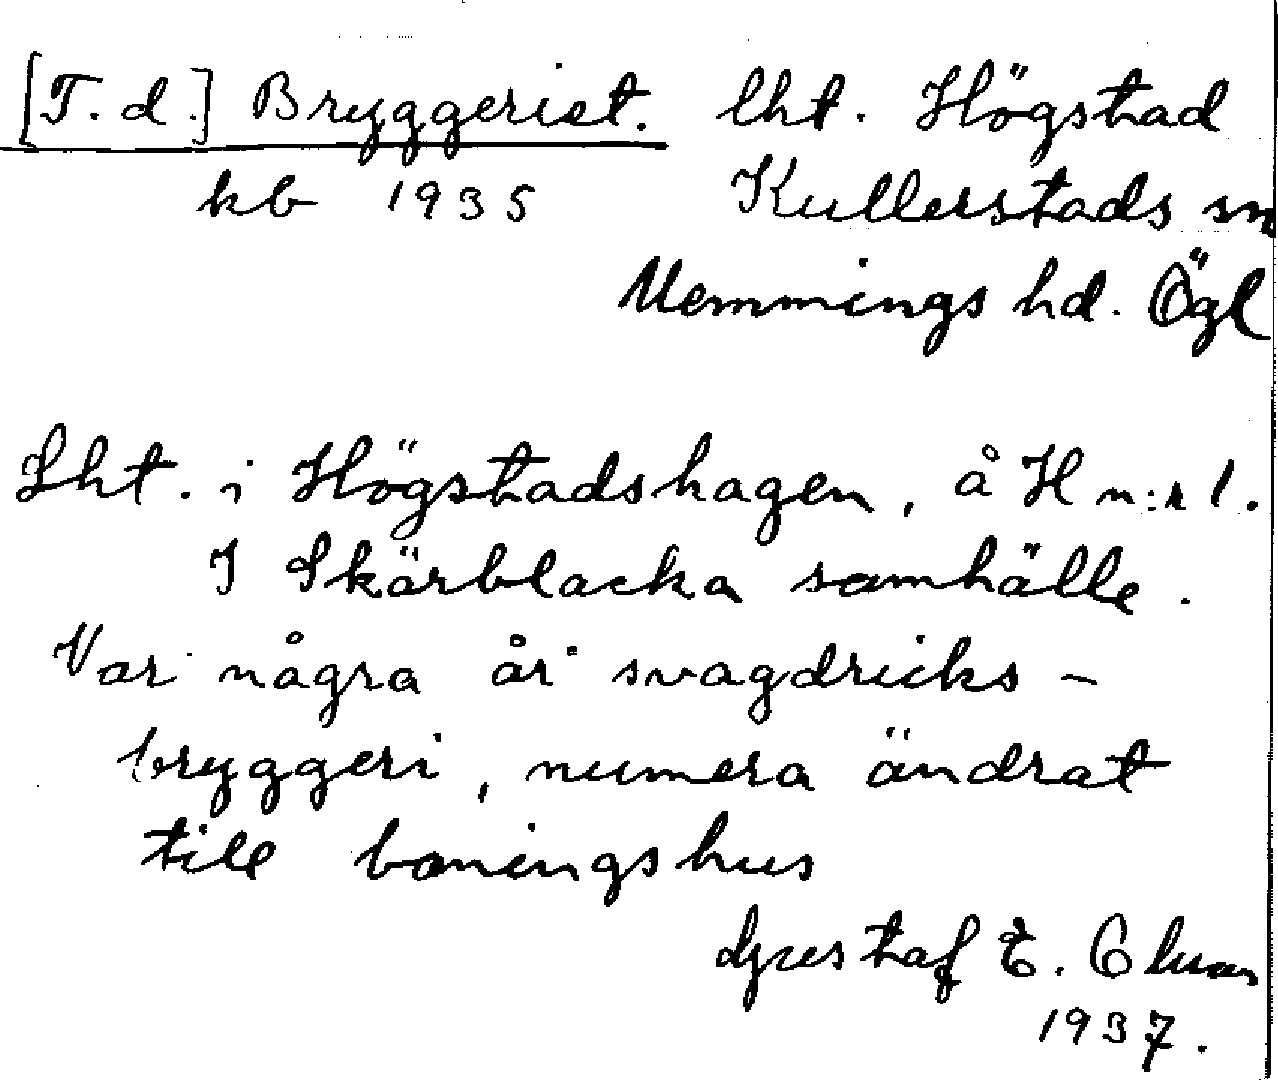 [T. d.] Bryggeriet. lht. Högstad
kb 1935 Kullerstads sn
Memmings hd. Ögl
Lht. i Högstadshagen, å H n:r 1.
I Skärblacka samhälle.
Var några år svagdricks-
bryggeri, numera ändrat
till boningshus
Gustaf E.
1937.